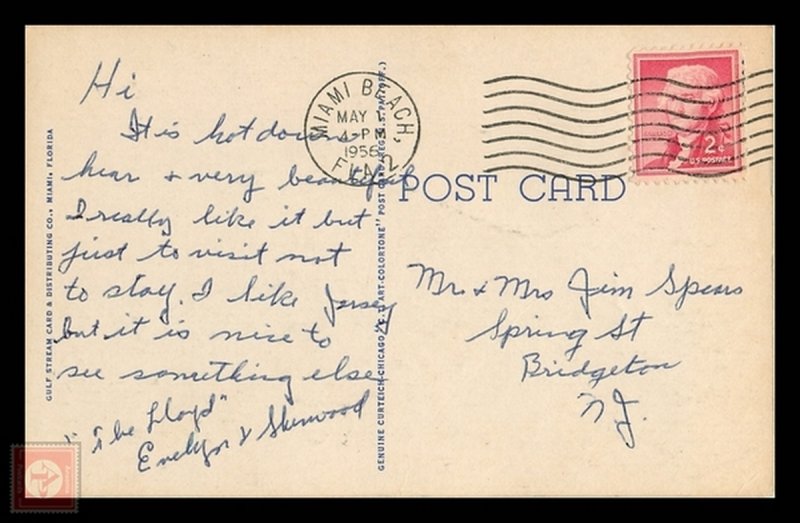 Hi
It is hot down
hear + very beautiful
I really like it but
just to visit not
to stay. I like Jersey
but it is nice to
see something else
"The Lloyd"
Evelyn & Sherwood
GULF STREAM CARD & DISTRIBUTING CO., MIAMI, FLORIDA
GENUINE CURTEICH-CHICAGO "C.T. ART-COLORTONE" POST CARD (REG. U.S. PAT. OFF.)
MIAMI BEACH,
MAY 1
4-PM
1956
FLA.
2¢
U.S. POSTAGE
POST CARD
Mr. & Mrs Jim Spears
Spring St
Bridgeton
N J.